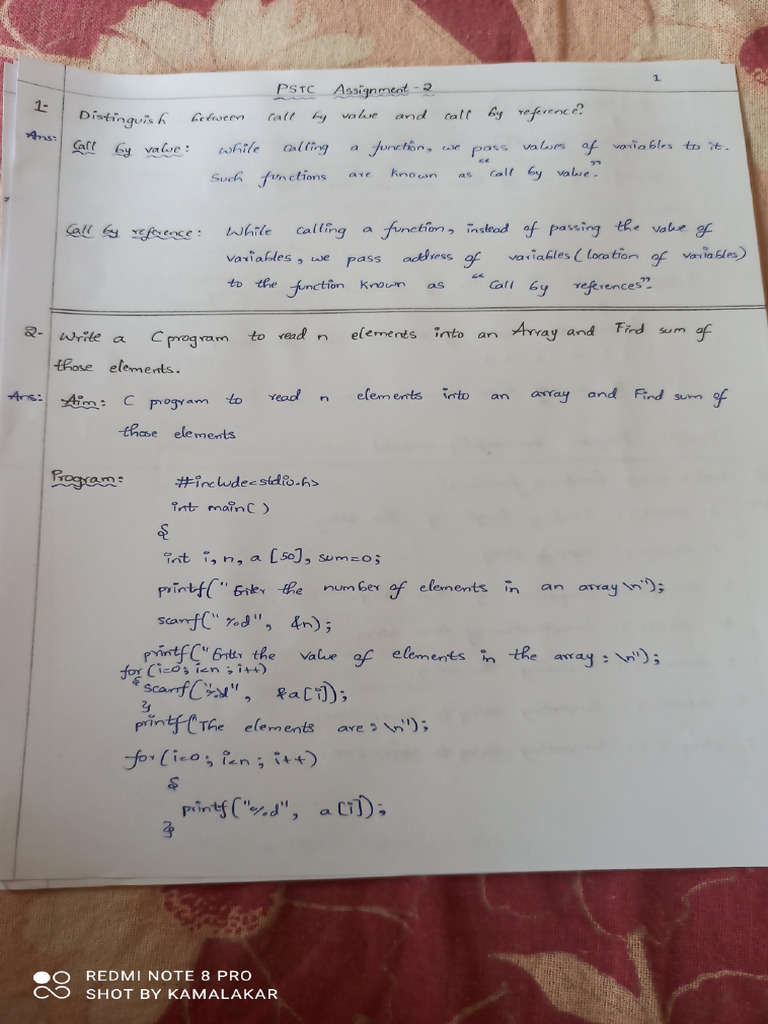 PSTC Assignment-2
1
1- Distinguish between call by value and call by reference?
Ans: Call by value: While calling a function, we pass values of variables to it.
Such functions are known as "Call by value."
Call by reference: While calling a function, instead of passing the value of
variables, we pass address of variables (location of variables)
to the function known as "Call by references".
2- Write a C program to read n elements into an Array and Find sum of
those elements.
Ans: Aim: C program to read n elements into an array and Find sum of
those elements
Program: #include<stdio.h>
int main()
{
int i, n, a[50], sum=0;
printf("Enter the number of elements in an array \n");
scanf("%d", &n);
printf("Enter the value of elements in the array: \n");
for(i=0; i<n; i++)
{
scanf("%d", &a[i]);
}
printf("The elements are: \n");
for(i=0; i<n; i++)
{
printf("%d", a[i]);
}
REDMI NOTE 8 PRO
SHOT BY KAMALAKAR